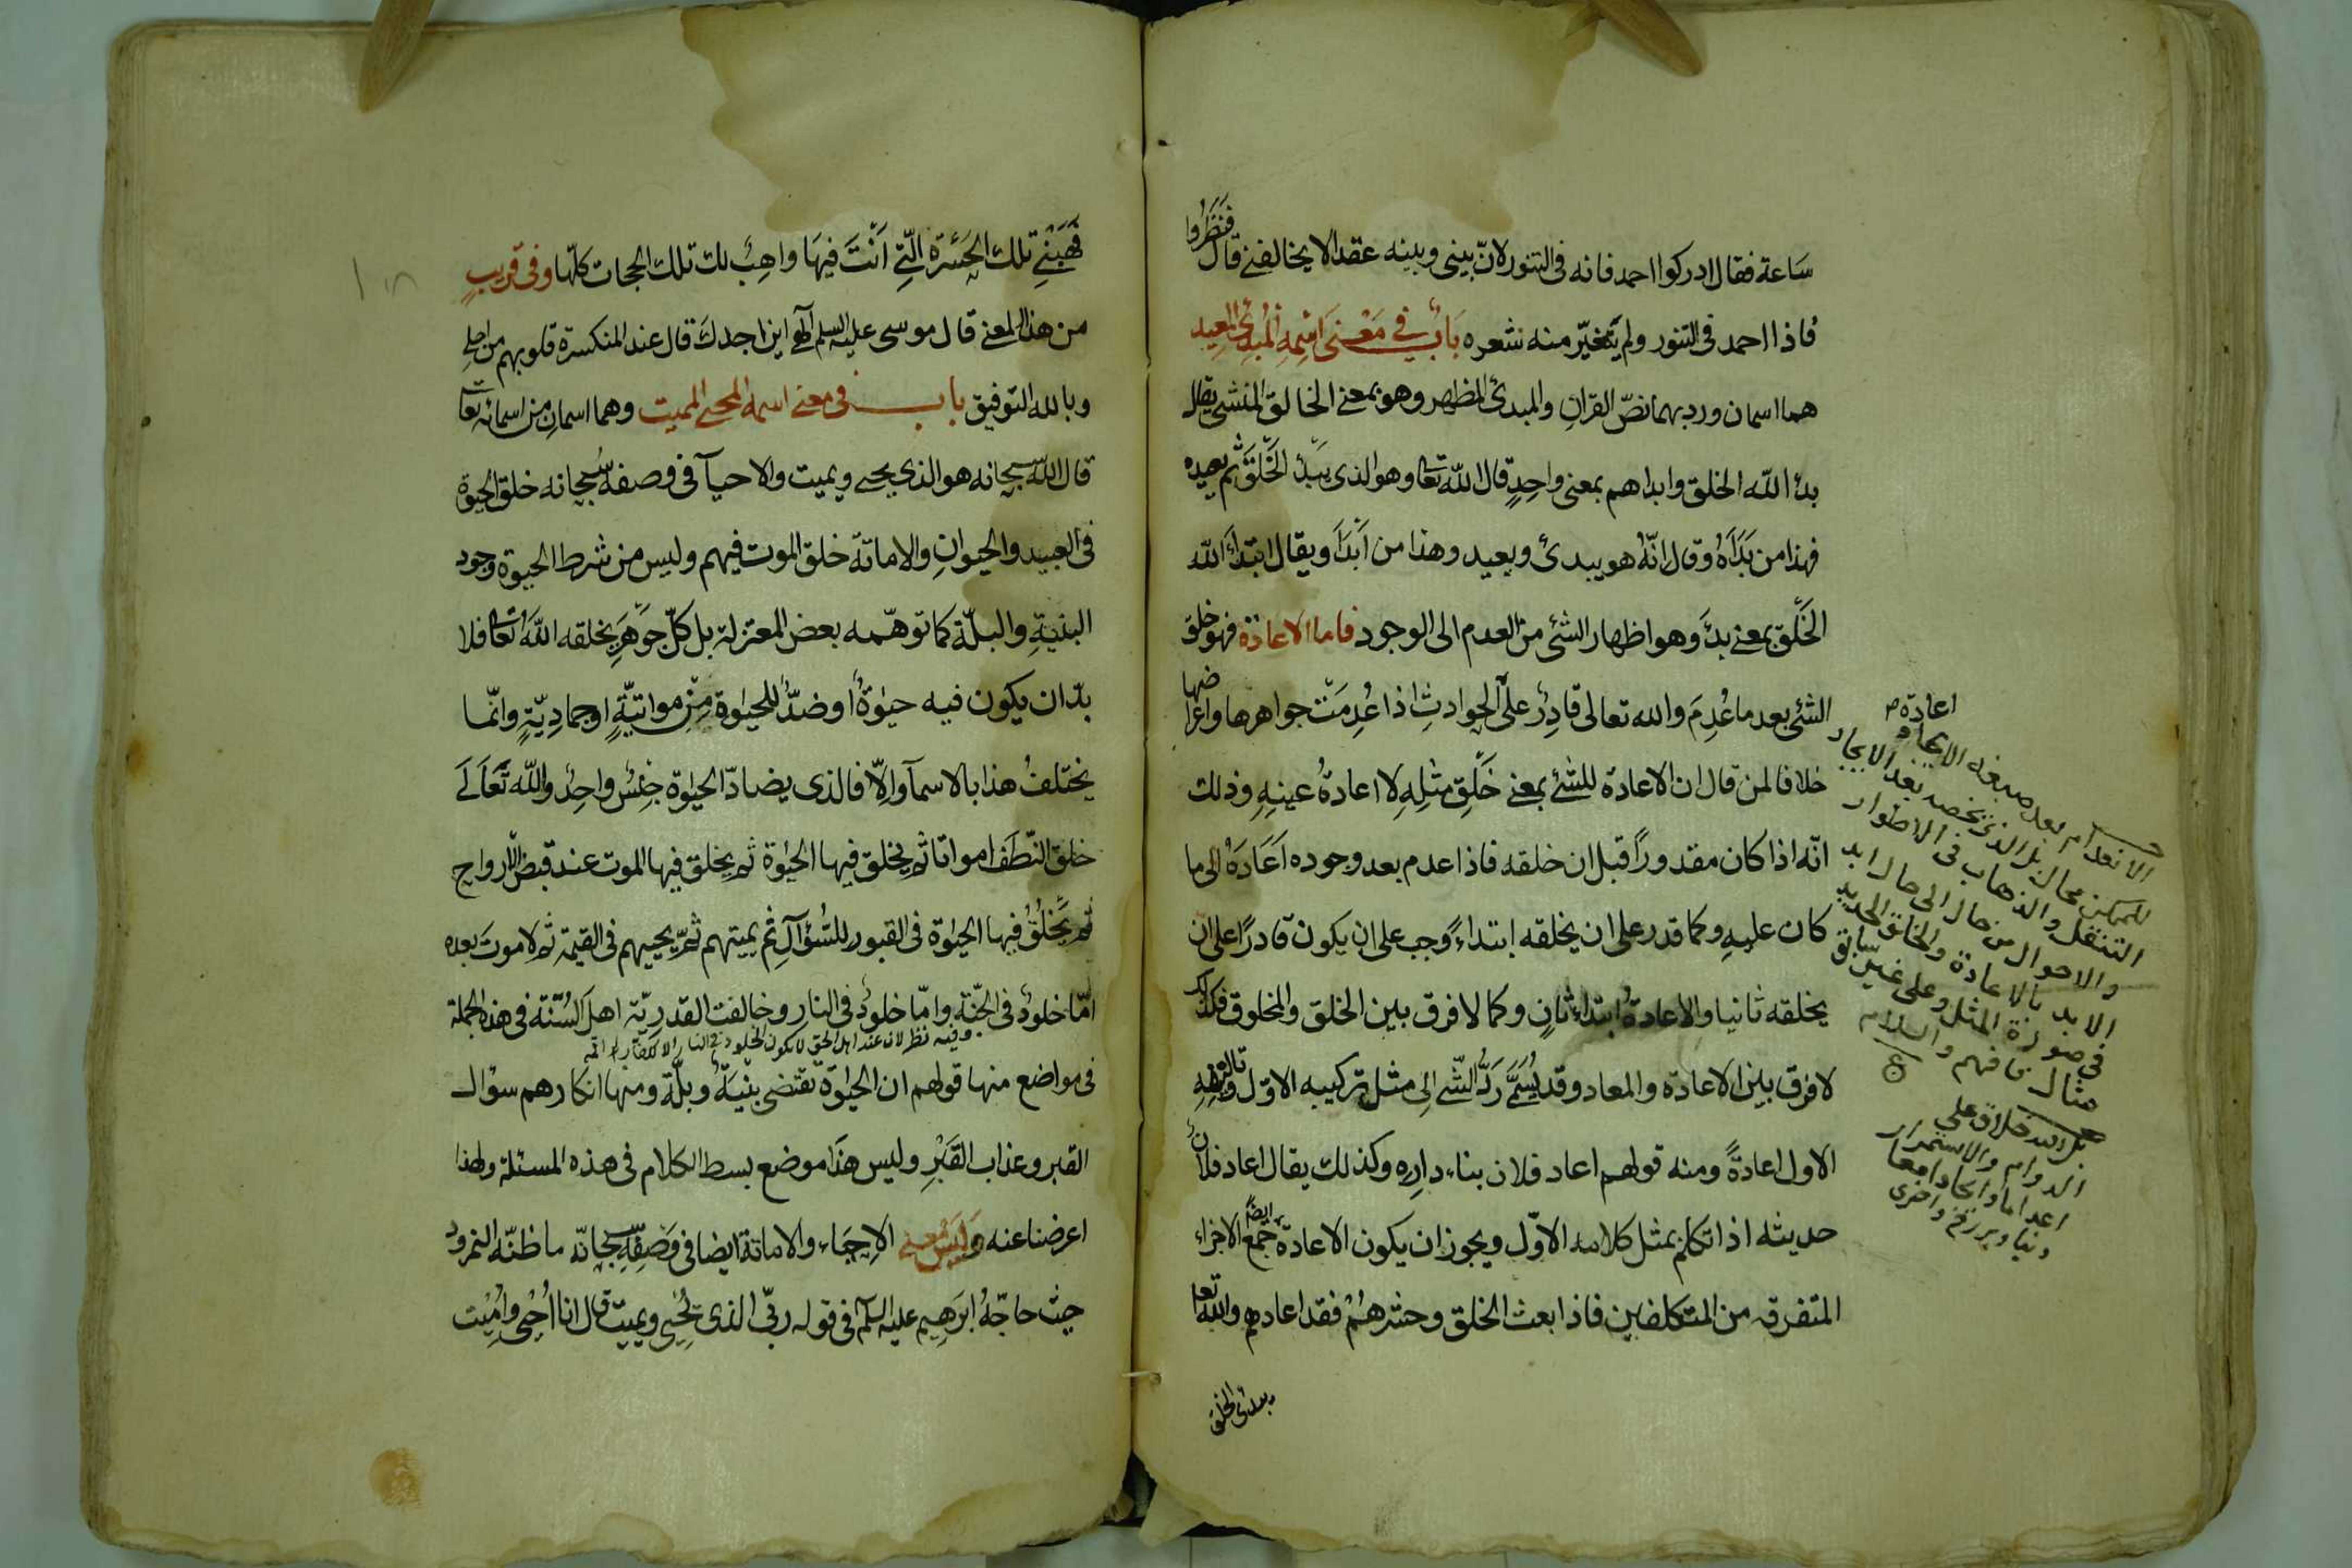 ساعة فقال ادركوا احمد فانه فى التنور لانّ بينى وبينه عقدا لا يخالفنى قال فَنَظَرُوا
فاذا احمد فى التنور ولم يتغيّر منه شعره بَابٌ فِى مَعْنَى اسْمِهِ المُبْدِئِ المُعِيد
هما اسمان ورد بهما نصّ القرانِ والمبدئ المظهر وهو بمعنى الخالق المنشئ يقال
بدأ اللّه الخلق وابداهم بمعنى واحِدٍ قال اللّه تعا وهو الذى يَبْدَؤُ الخَلْقَ ثُم يعيده
فهذا من بَدَأَهُ وقال انّه هو يبدئ ويعيد وهذا من اَبْدَأَ ويقال ابتدأ اللّه
الخَلْق بمعنى بدأ وهو اظهار الشئ من العدم الى الوجود فاما الاعادة فهو خلق
الشئ بعد ما عُدِمَ والله تعالى قادِرٌ علَى الحوادثِ اذا عُدِمَتْ جواهرها واعراضها
خلافا لمن قال ان الاعادة للشئ بمعنى خَلْقِ مثلِهِ لا اعادةُ عينِهِ وذلك
انّه اذا كان مقدوراً قبل ان خلقه فاذا عدم بعد وجوده اَعَادَهُ الى ما
كان عليهِ وكما قدر على ان يخلقه ابتداءً وجب على ان يكون قادرًا على ان
يخلقه ثانيا والاعادةُ ابتداءٌ ثانٍ وكما لا فرق بين الخلق والمخلوق فكذلك
لا فرق بين الاعادة والمعاد وقد يُسَمَّى رَدُّ الشّئ الى مثل تركيبه الاوّل وتاليفهِ
الاول اعادةً ومنه قولهم اعاد فلان بناء دارِه وكذلك يقال اعاد فلانٌ
حديثه اذا تكلم بمثل كلامه الاوّل ويجوز ان يكون الاعادة ايضًا جمع الاجزاء
المتفرقه من المتكلفين فاذا بعث الخلق وحشرهُمْ فقد اعادهم واللّه تعا
يبدئ الخلق
اعادة
الانعدام بعد صبغه الايجاد
للممكن محال بل الذى يخصه بعد الايجاد
التنقل والذهاب فى الاطوار
والاحوال من حال الى حال ابد
الابد بالاعادة والخلق الجديد
فى صورة المثل وعلى غير سابق
مثال فافهم والسلام
بل الله خلاق على
الدوام والاستمرار
اعداما وايجادا معا
دنيا وبرزخ واخرى
فَهَبْنِى تلك الحَسْرَة الّتِى اَنْتَ فيهَا واهِبُ لك تلك الحجات كلّها وفى قريبٍ
من هذا المعنى قال موسى عليه السلم الهى اين اجدك قال عند المنكسرة قلوبهم من اجلى
وبالله التوفيق باب فى معنى اسمه المحيى المميت وهما اسمانِ من اسمائه تعا
قال اللّه سبحانه هو الذى يحيى ويميت والاحيآ فى وصفه سُبحانه خلق الحيوة
فى العبيد والحيوانِ والاماتة خلق الموت فيهم وليس من شرط الحيوة وجود
البنيةِ والبلّة كما توهّمه بعض المعتزلة بل كلّ جوهَرٍ يخلقه اللّه تعا فلا
بدّ ان يكون فيه حيٰوةٌ او ضدٌّ للحيٰوة مِنْ مواتيّةٍ اوجماديّةٍ وانّما
يختلفُ هذا بالاسمآ والّا فالذى يضادّ الحيٰوة جِنْسٌ واحِدٌ واللّه تَعَالَى
خلق النّطَف امواتا ثم يخلق فيها الحيٰوة ثم يخلق فيها الموت عند قبض الارواح
ثم يَخْلُقُ فيها الحيٰوة فى القبور للسُّؤَالِ ثم يميتهم ثمّ يحييهم فى القيمة ثم لا موتَ بعده
امّا خلودٌ فى الجنّةِ وامّا خلودٌ فى النار وخالفت القدريّة اهل السُّنّة فى هذه الجملة
وفيه نظر لان عند اهل الحق لا يكون الخلود فى النار الا للكفار
فى مواضع منها قولهم ان الحيٰوة تقتضى بِنْيَةً وبلّة ومنها انكارهم سؤال
القبر وعذاب القَبْرِ وليس هذا موضع بسط الكلام فى هذه المسئلة ولهذا
اعرضنا عنه وَلَيْسَ مَعنى الاِحيَاء والاماتة ايضا فى وَصْفِهِ سبحانه ما ظنّه النمرود
حيث حاجّهُ ابرَهيم عليه السلم فى قوله ربّى الذى يُحْيِى ويميت قال انا اُحْيِى واُمِيت